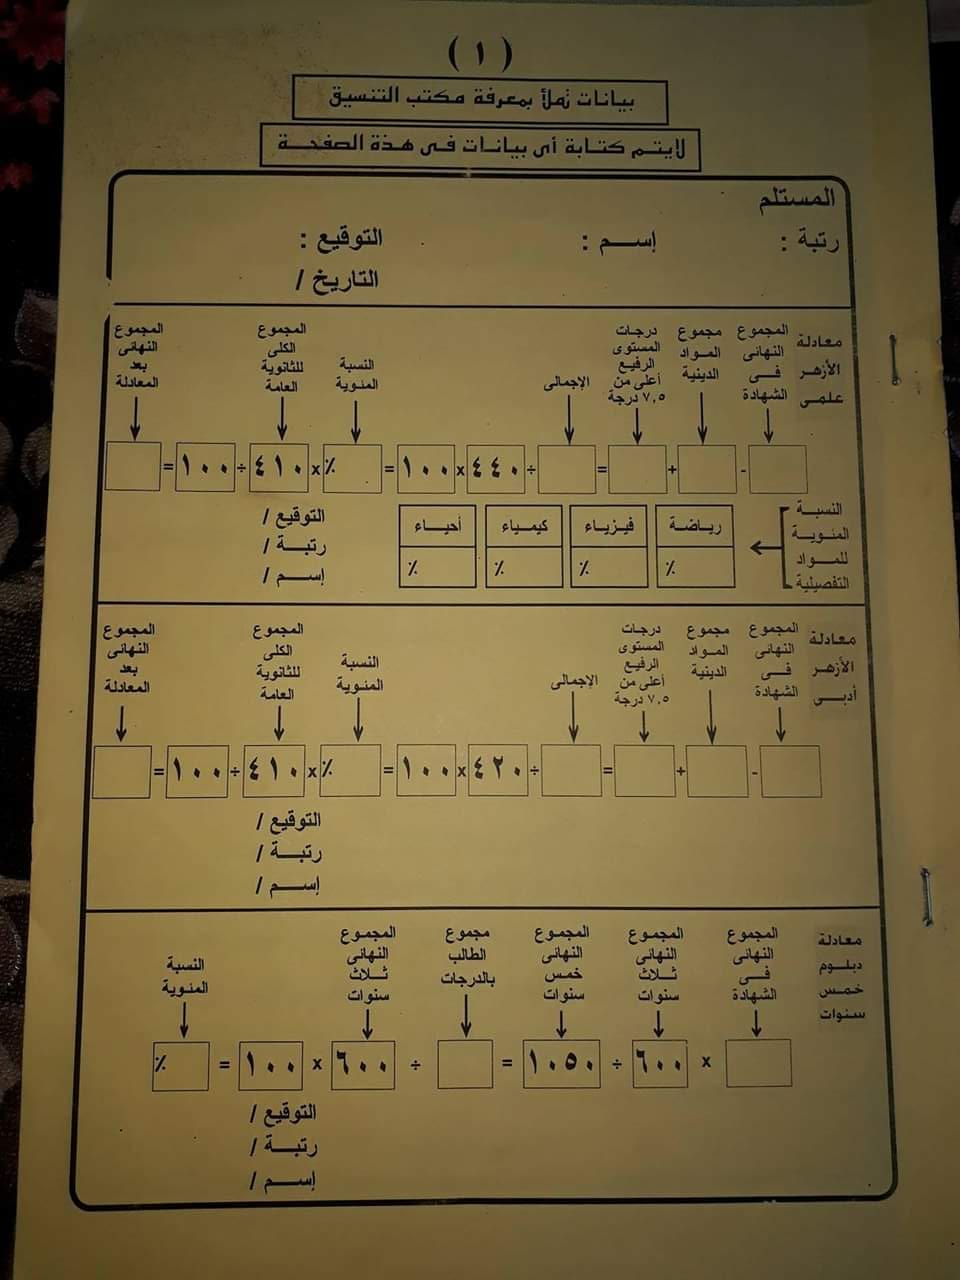 ( ١ )
بيانات تملأ بمعرفة مكتب التنسيق
لايتم كتابة أى بيانات فى هذة الصفحة
المستلم
رتبة : إسم : التوقيع :
التاريخ /
معادلة الأزهر علمى
المجموع النهائى فى الشهادة
مجموع المواد الدينية
درجات المستوى الرفيع أعلى من ٧,٥ درجة
الإجمالى
النسبة المئوية
المجموع الكلى للثانوية العامة
المجموع النهائى بعد المعادلة
- + = ÷ ٤٤٠ × ١٠٠ = ٪ × ٤١٠ ÷ ١٠٠ =
النسبة المئوية للمواد التفصيلية
رياضة فيزياء كيمياء أحياء
٪ ٪ ٪ ٪
التوقيع /
رتبة /
إسم /
معادلة الأزهر أدبى
المجموع النهائى فى الشهادة
مجموع المواد الدينية
درجات المستوى الرفيع أعلى من ٧,٥ درجة
الإجمالى
النسبة المئوية
المجموع الكلى للثانوية العامة
المجموع النهائى بعد المعادلة
- + = ÷ ٤٢٠ × ١٠٠ = ٪ × ٤١٠ ÷ ١٠٠ =
التوقيع /
رتبة /
إسم /
معادلة دبلوم خمس سنوات
المجموع النهائى فى الشهادة
المجموع النهائى ثلاث سنوات
المجموع النهائى خمس سنوات
مجموع الطالب بالدرجات
المجموع النهائى ثلاث سنوات
النسبة المئوية
× ٦٠٠ ÷ ١٠٥٠ = ÷ ٦٠٠ × ١٠٠ = ٪
التوقيع /
رتبة /
إسم /